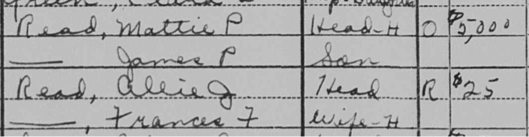 Read, Mattie P Head-H O $5,000
— James P Son
Read, Ollie J Head R $25
—, Frances F Wife-H